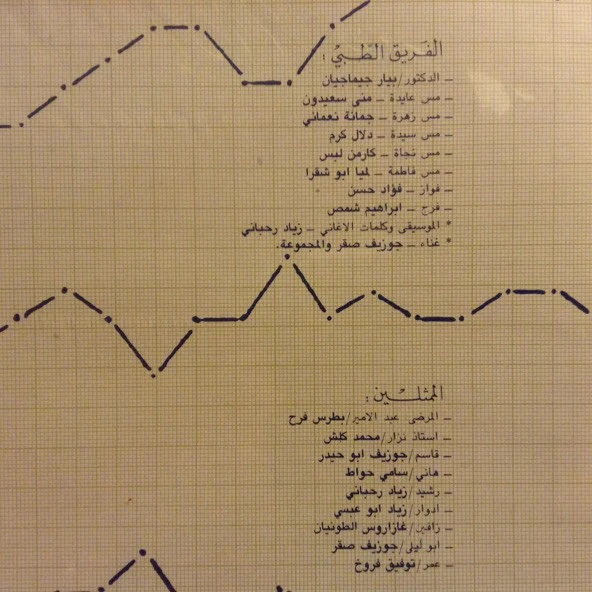 الفريق الطبي :
ــ الدكتور/بيار جيماجيان
ــ مس عايدة ــ منى سعيدون
ــ مس زهرة ــ جمانة نعماني
ــ مس سيدة ــ دلال كرم
ــ مس نجاة ــ كارمن لبس
ــ مس فاطمة ــ لميا ابو شقرا
ــ فواز ــ فؤاد حسن
ــ فرج ــ ابراهيم شمص
* الموسيقى وكلمات الاغاني ــ زياد رحباني
* غناء ــ جوزيف صقر والمجموعة.
الممثلين :
ــ المرضى عبد الامير/بطرس فرح
ــ استاذ نزار/محمد كلش
ــ قاسم/جوزيف ابو حيدر
ــ هاني/سامي حواط
ــ رشيد/زياد رحباني
ــ ادوار/زياد ابو عبسي
ــ زافين/غازاروس الطونيان
ــ ابو ليلى/جوزيف صقر
ــ عمر/توفيق فروخ